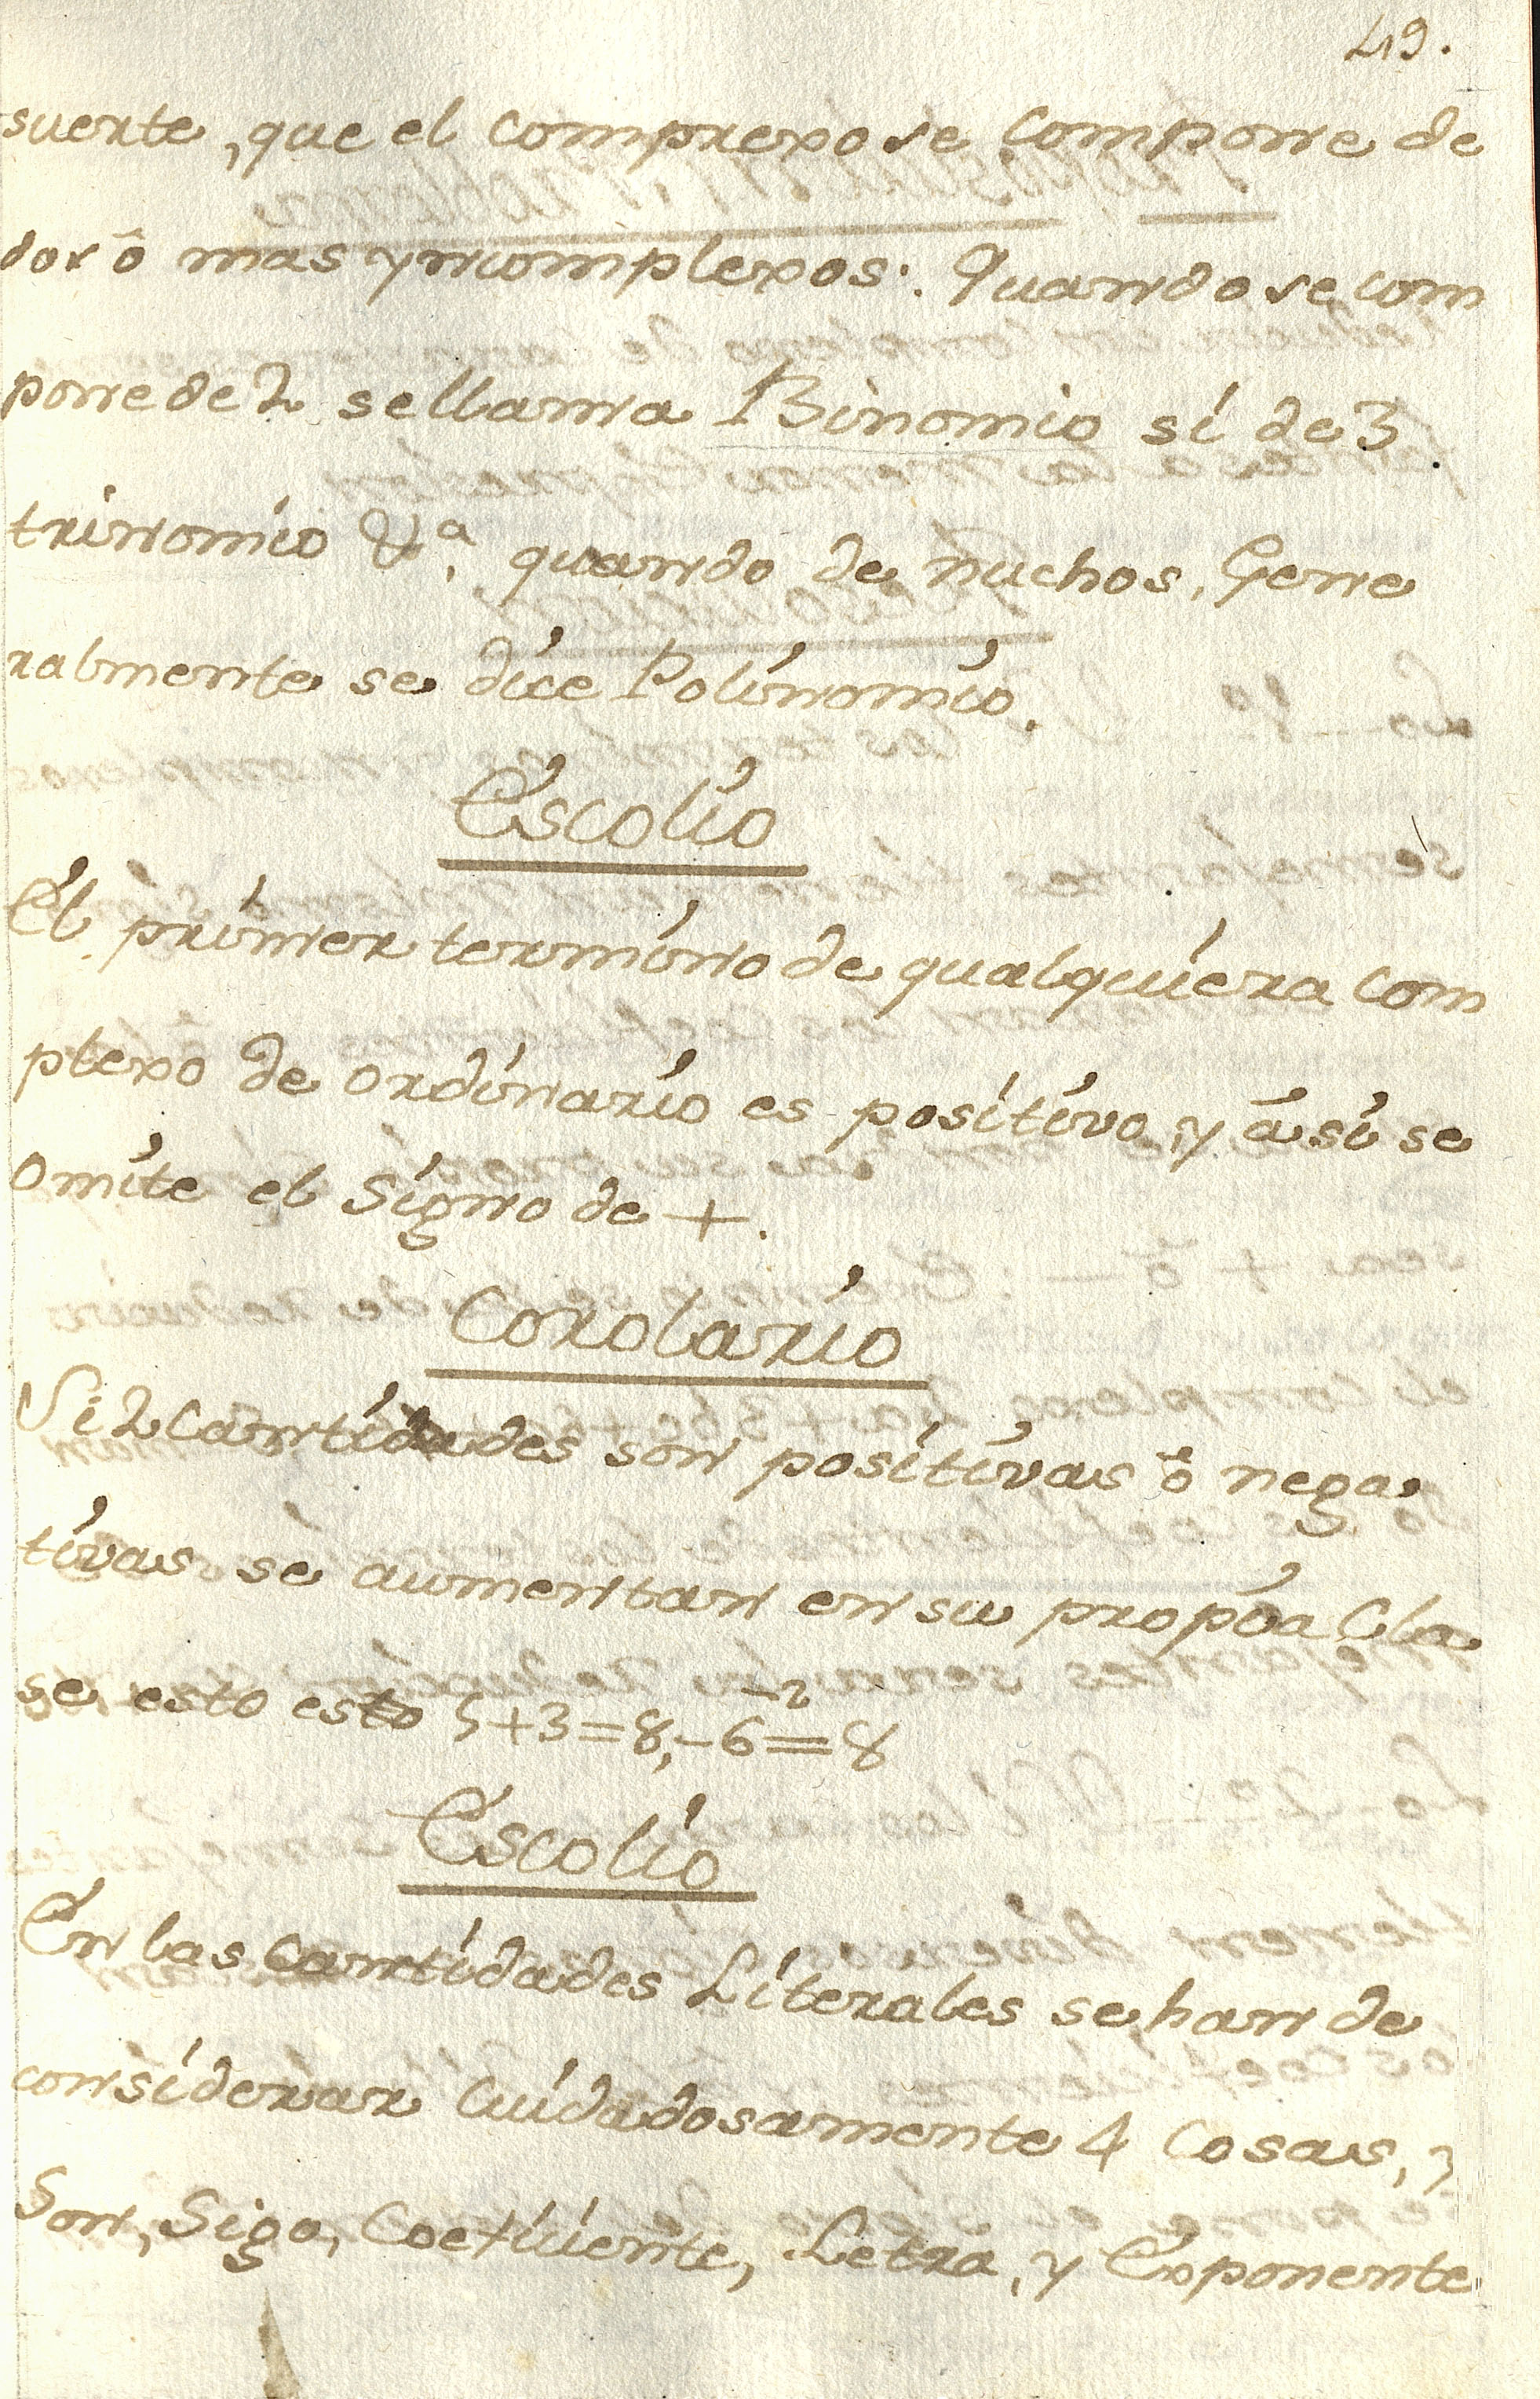 49.
suerte, que el comprexo se compone de
dos ô mas yncomplexos. Quando se com
pone de 2 se llama Binomio si de 3
trinomio &ª, quando de muchos, Gene
ralmente se dice Polinomio.
Escolio
El primer termino de qualquiera com
plexo de ordinario es positivo, y ási se
omite el Signo de +.
Corolario
Si 2 Cantidades son positivas ô nega
tivas se aumentan en su propia Cla
se esto esto 5+3=8,-6-2=8
Escolio
En las Cantidades Literales se han de
considerar Cuidadosamente 4 Cosas, y
Son, Sigo, Coeficiente, Letra, y Exponente